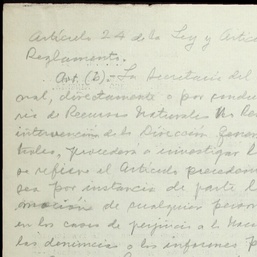 Artículo 24 de la Ley y Artíc
Reglamento.
Art. (2).- La Secretaría del
nal, directamente o por conduc
ría de Recursos Naturales No Ren
intervención de la Dirección Gener
trales, procederá a investigar l
se refiere el Artículo preceden
sea por instancia de parte
moción de cualquier person
en los casos de perjuicio a la Nac
las denuncias o los informes p